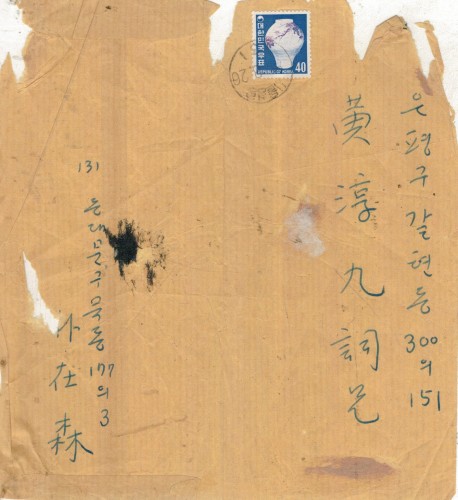 대한민국우표
REPUBLIC OF KOREA
40
은평구 갈현동 300의 151
黃淳九 詞兄
131
동대문구 묵동 177의 3
朴在森